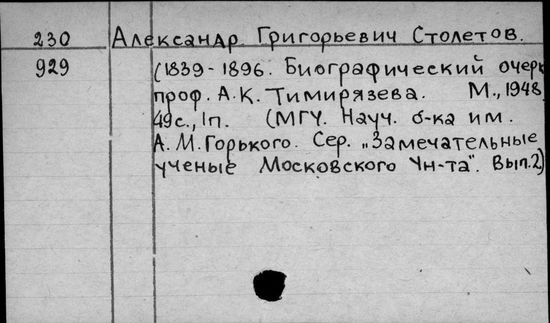 230 Александр Григорьевич Столетов.
929 (1839-1896. Биографический очерк
проф. А.К. Тимирязева. М., 1948
49с., 1п. (МГУ. Науч. б-ка им.
А.М.Горького. Сер. „Замечательные
ученые Московского Ун-та". Вып.2)